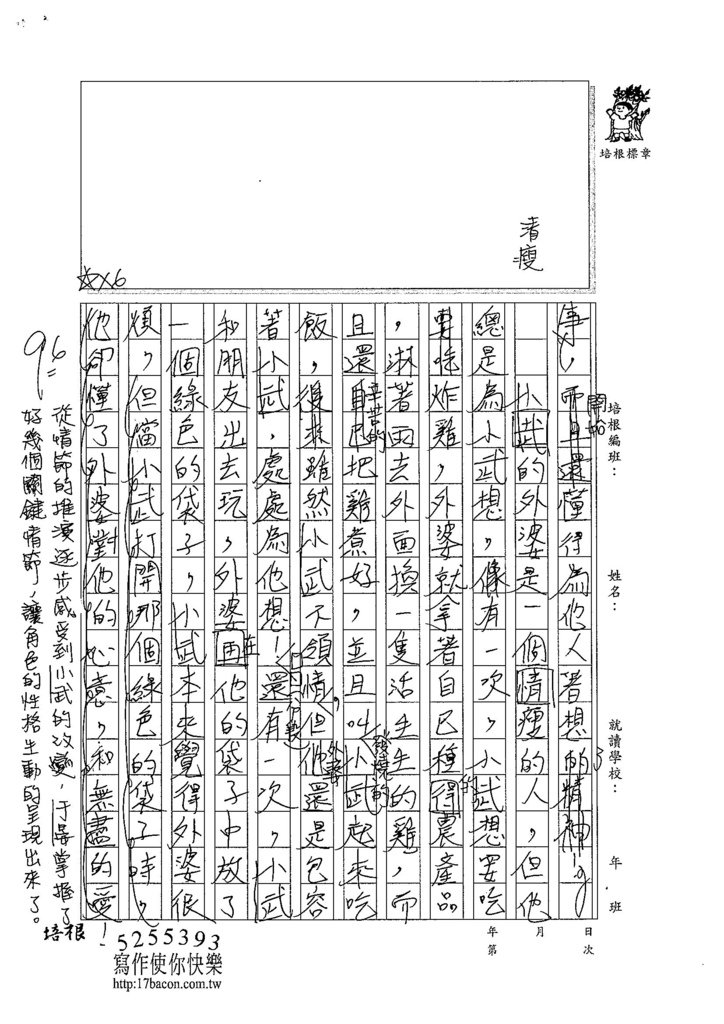 培根標章
清瘦
☆x6
培根編班：
姓名：
就讀學校：
年 班
日次
月
年第
事，而且還懂得為他人著想的精神。
開始
了
小武的外婆是一個情瘦的人，但他
總是為小武想，像有一次，小武想要吃
要吃炸雞，外婆就拿著自己種得農產品
的
，淋著雨去外面換一隻活生生的雞，而
且還自己把雞煮好，並且叫小武起來吃
辛苦的
發燒的
飯，後來雖然小武不領情，但他還是包容
外婆
著小武，處處為他想！還有一次，小武
和朋友出去玩，外婆再他的袋子中放了
在
一個綠色的袋子，小武本來覺得外婆很
煩，但當小武打開那個綠色的袋子時，
他卻懂了外婆對他的心意，和無盡的愛！
96
從情節的推演逐步感受到小武的改變，于晏掌握了
好幾個關鍵情節，讓角色的性格生動的呈現出來了。
培根
5255393
寫作使你快樂
http:17bacon.com.tw